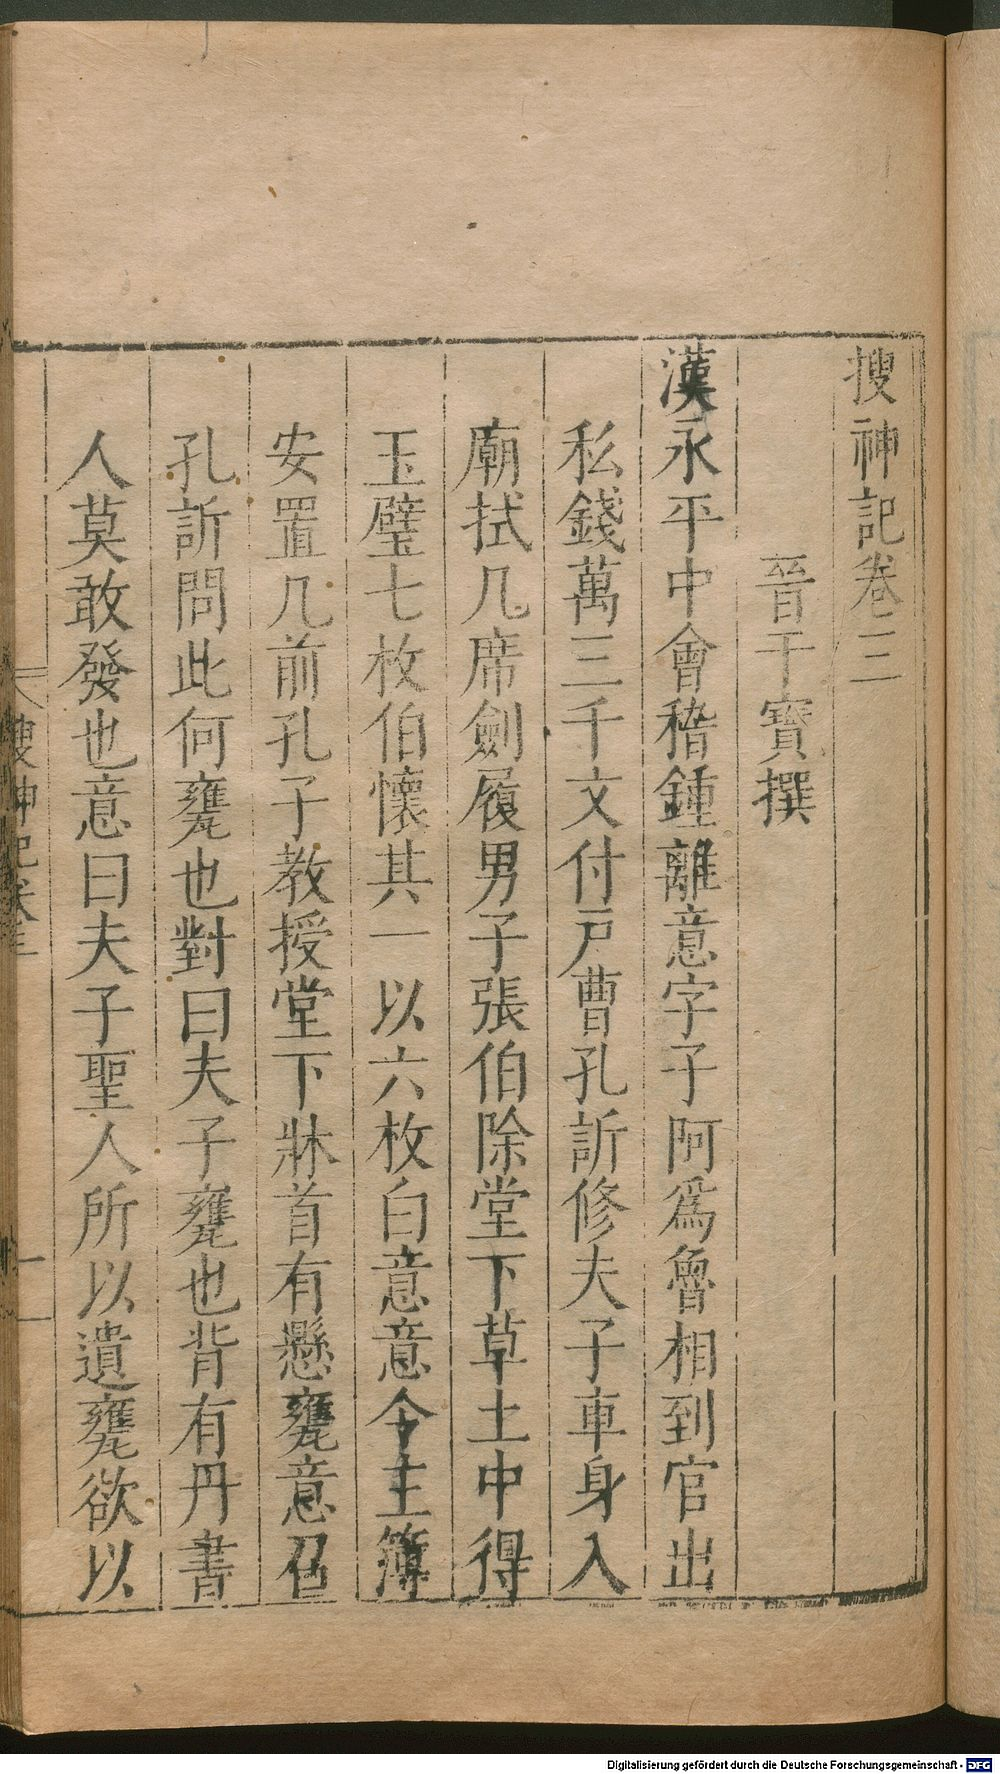 搜神記卷三
晉干寶撰
漢永平中會稽鍾離意字子阿爲魯相到官出
私錢萬三千文付戸曹孔訢修夫子車身入
廟拭几席劍履男子張伯除堂下草土中得
玉璧七枚伯懷其一以六枚白意意令主簿
安置几前孔子教授堂下牀首有懸甕意召
孔訢問此何甕也對曰夫子甕也背有丹書
人莫敢發也意曰夫子聖人所以遺甕欲以
搜神記卷三
一
Digitalisierung gefördert durch die Deutsche Forschungsgemeinschaft - DFG